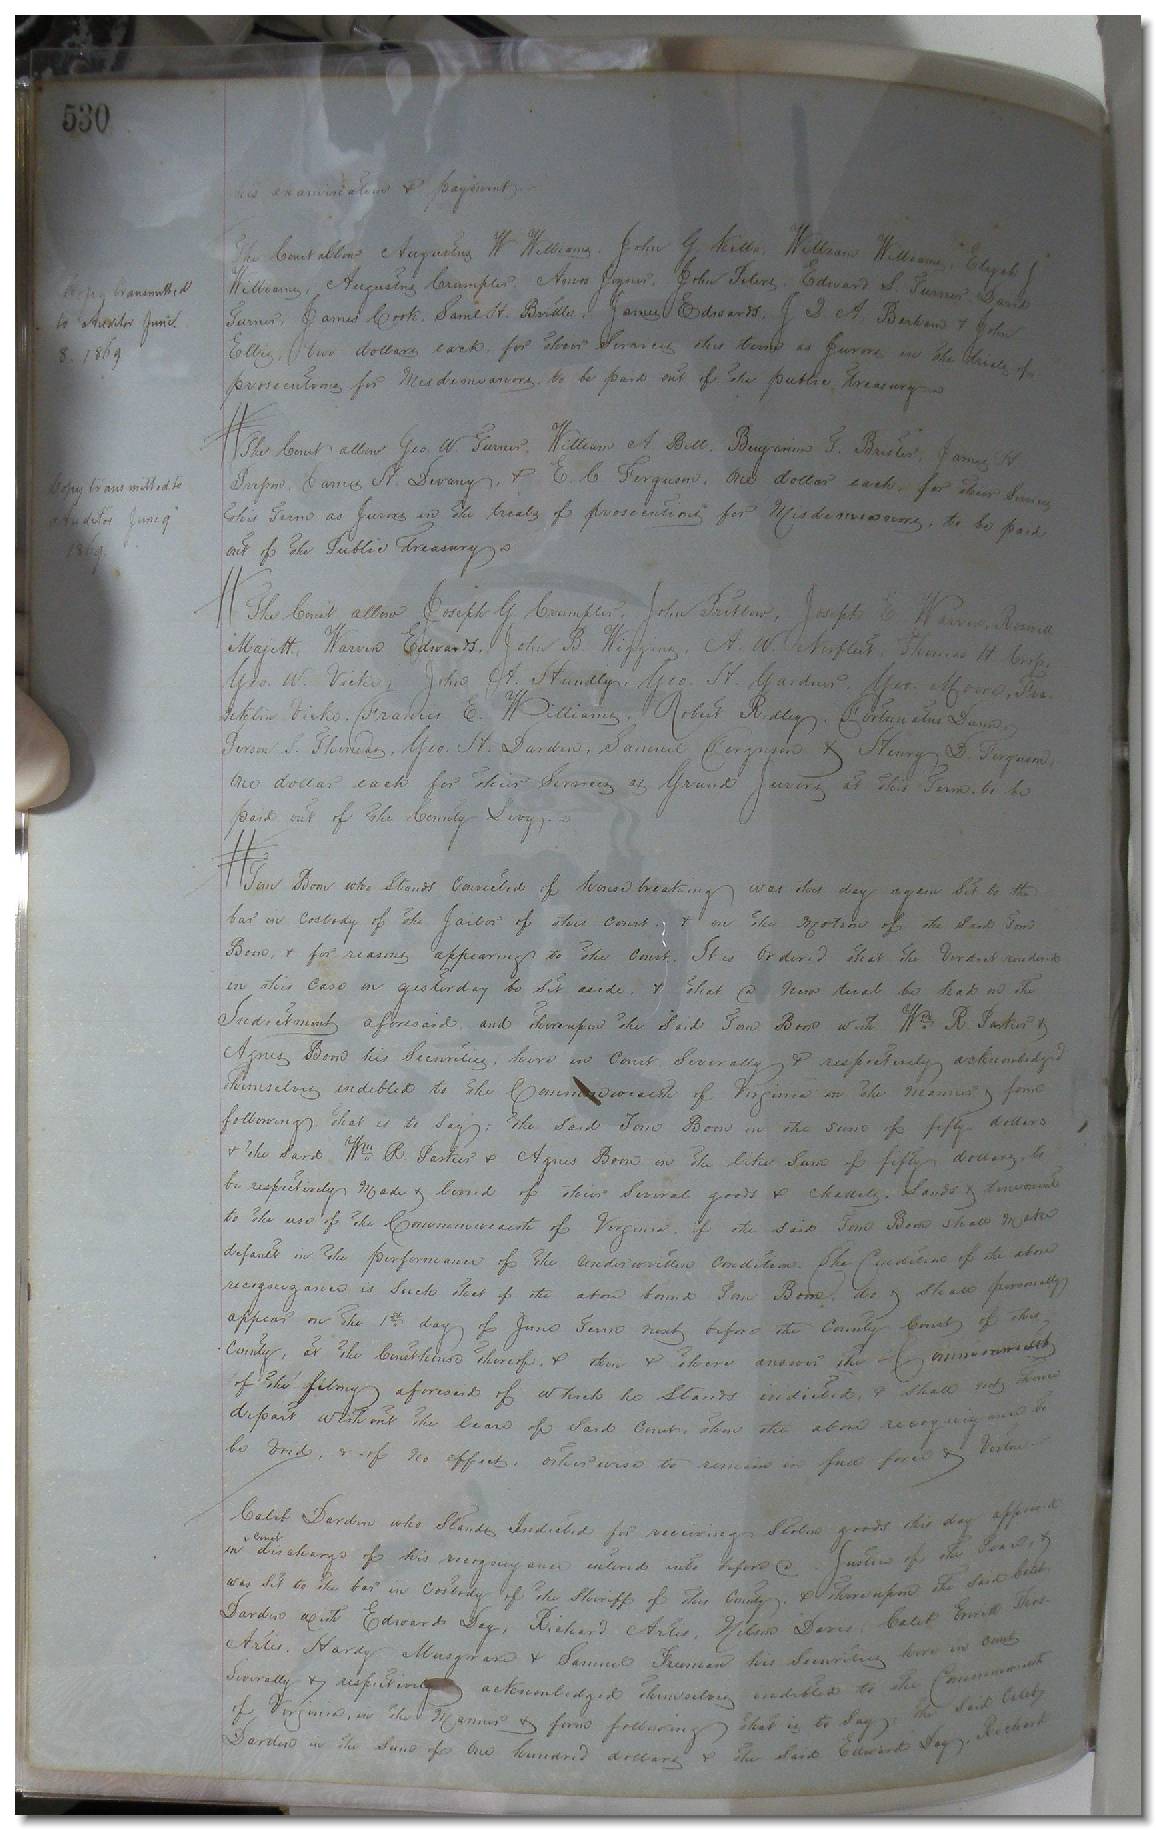 530
his examination & payment
The Court allow Augustus W Williams, John G Wills, William Williams, Elijah J
Copy transmitted
to Auditor June
8. 1869
Williams, Augustus Crumpler, Amos Joyner, John Edward S. Turner David
Turner, James Cook, Saml H. Brittle, James Edwards, J D A. Barham & John
Ellis, two dollars each, for their Services this term as Jurors in the trials of
prosecutions for Misdemeanors, to be paid out of the public Treasury
The Court allow Geo. W. Turner, William A Bell, Benjamin F. Brister, James H
Copy transmitted to
Auditor June 9
1869.
James H. Devany, & E. C Ferguson, one dollar each, for their Services
this Term as Jurors in the trials of prosecutions for Misdemeanors, to be paid
out of the Public Treasury
The Court allow Joseph G Crumpler, John Pretlow, Joseph E Warren,
Majett, Warren Edwards, John B. Wiggins, A. W. Norfleet, Thomas H
Geo. W. Vick, John H. Hundley, Geo. H. Gardner, Geo. Moore,
Vick, Francis E. Williams, Robert Ridley,
Geo. H. Darden, Samuel Ferguson & Henry D. Ferguson,
one dollar each for their Services as Grand Jurors at this Term, to be
paid out of the County Levy.
Tom Boon who Stands Convicted of house breaking was this day again Set to the
bar in custody of the Jailor of this court, & on the motion of the said Tom
Boon, & for reasons appearing to the Court, It is Ordered that the Verdict rendered
in this case on yesterday be Set aside, & that a new trial be had on the
Indictment aforesaid, and thereupon the Said Tom Boon with Wm R. Parker &
Agnes Boon his Securities, here in Court Severally & respectively acknowledged
themselves indebted to the Commonwealth of Virginia in the Manner & form
following that is to Say: the Said Tom Boon in the sum of fifty dollars
& the Said Wm R. Parker & Agnes Boon in the like Sum of fifty dollars, to
be respectively Made & levied of their Several goods & chattels, Lands & tenements
to the use of the Commonwealth of Virginia, if the said Tom Boon shall make
default in the performance of the underwritten Condition. The Condition of the above
recognizance is Such that if the above bound Tom Boon, do & shall personally
appear on the 1st day of June Term next before the County Court of this
County, at the Courthouse thereof, & then & there answer the Commonwealth
of the felony aforesaid of which he Stands indicted, & shall not thence
depart without the leave of Said Court, then the above recognizance to
be Void, & of no effect, otherwise to remain in full force & Virtue
Caleb Darden who Stands Indicted for receiving Stolen goods this day appeared
in Court discharge of his recognizance entered into before a Justice of the Peace, &
was Set to the bar in custody of the Sheriff of this County, & thereupon the said Caleb
Darden with Edward Day, Richard Artis, Nelson Davis, Caleb
Artis, Hardy Musgrave & Samuel Freeman his Securities here in court
Severally & respectively acknowledged themselves indebted to the Commonwealth
of Virginia, in the Manner & form following that is to Say: the Said Caleb
Darden in the Sum of One hundred dollars & the Said Edward Day, Richard